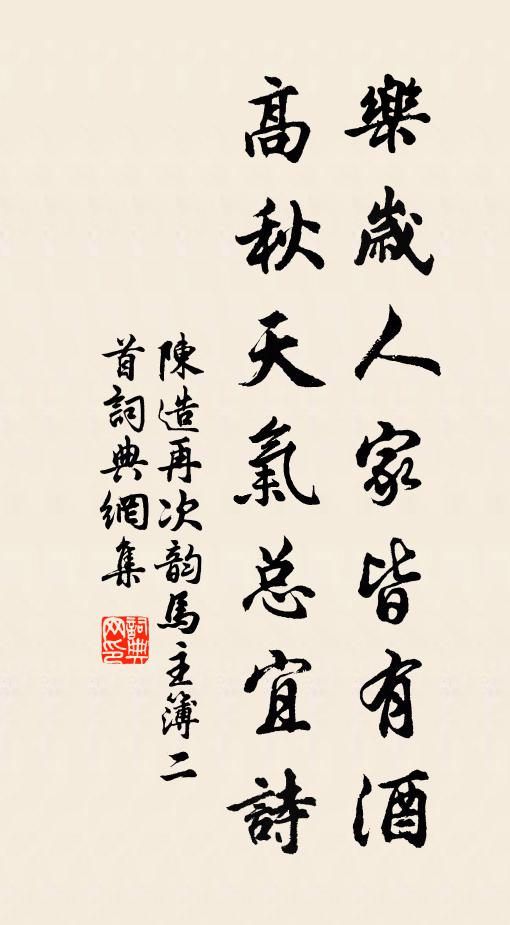 樂歲人家皆有酒
高秋天氣总宜詩
陳造再次韵馬主簿二
首詞典網集
詞典
网印